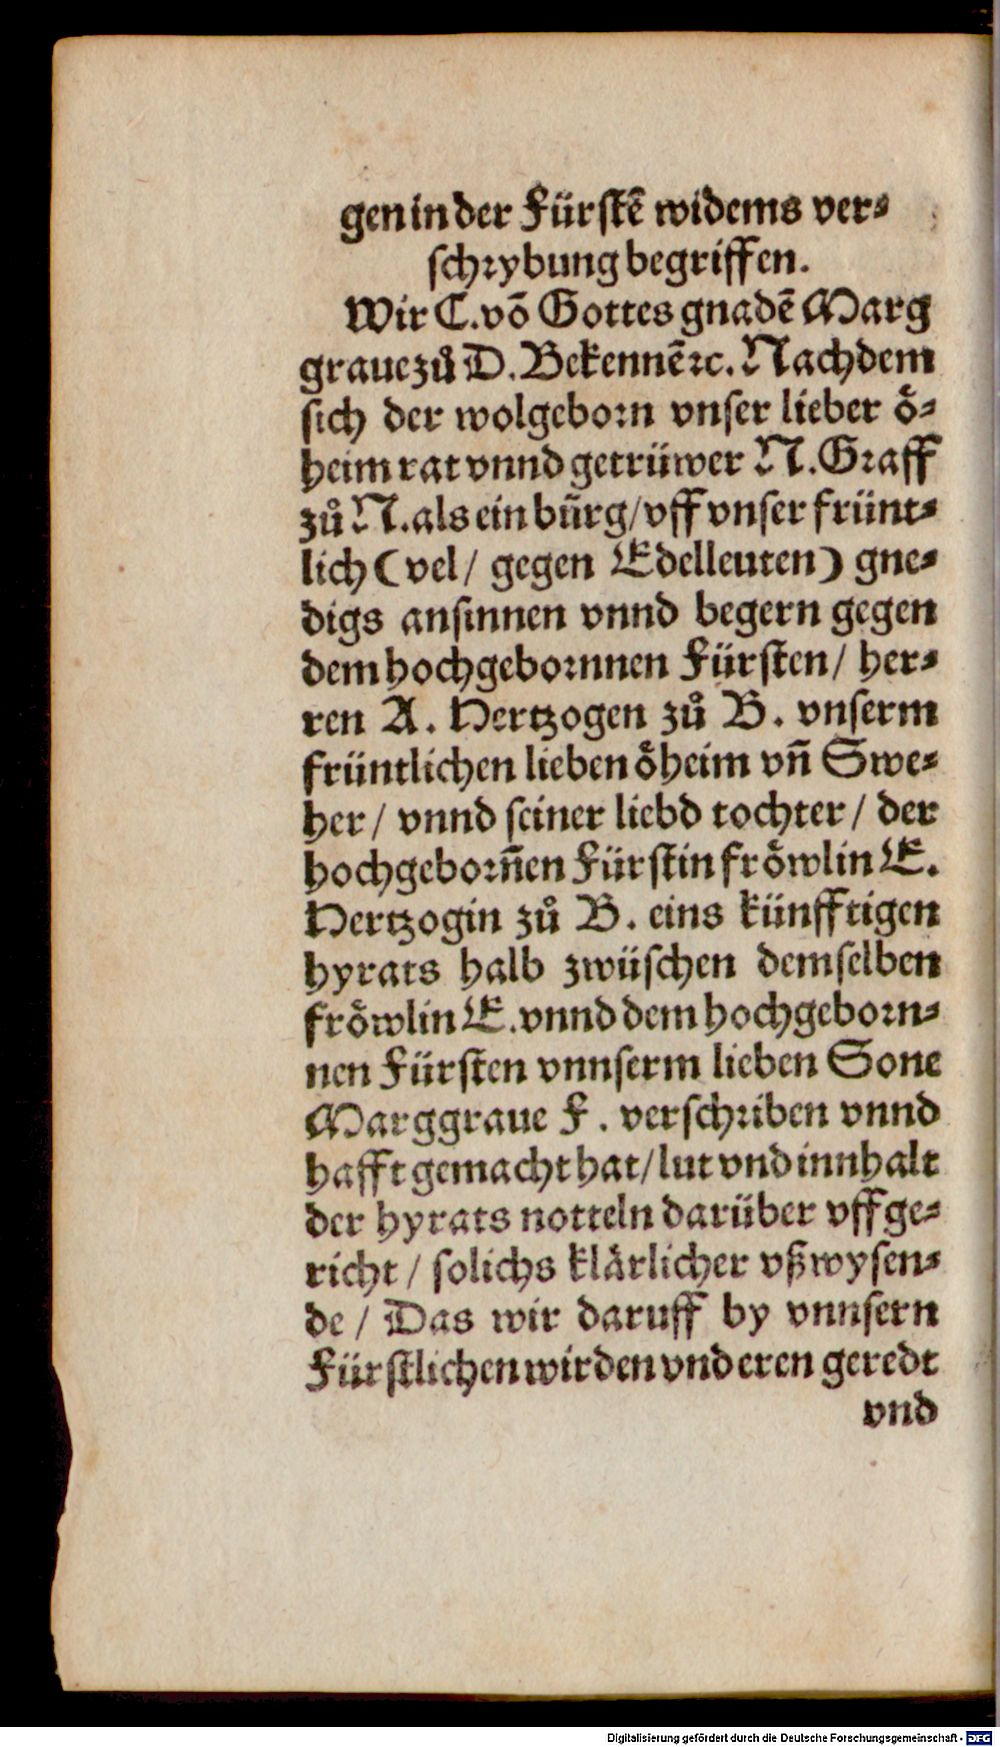 gen in der Fürstē widems ver⸗
schrybung begriffen.
Wir C. vō Gottes gnadē Marg
graue zů D. Bekennē ꝛc. Nachdem
sich der wolgeborn vnser lieber ö⸗
heim rat vnnd getrüwer N. Graff
zů N. als ein bürg/ vff vnser frünt⸗
lich (vel/ gegen Edelleuten) gne⸗
digs ansinnen vnnd begern gegen
dem hochgebornnen Fürsten/ her⸗
ren A. Hertzogen zů B. vnserm
früntlichen lieben öheim vñ Swe⸗
her/ vnnd seiner liebd tochter/ der
hochgeborñen Fürstin fröwlin E.
Hertzogin zů B. eins künfftigen
hyrats halb zwüschen demselben
fröwlin E. vnnd dem hochgeborn⸗
nen Fürsten vnnserm lieben Sone
Marggraue F. verschriben vnnd
hafft gemacht hat/ lut vnd innhalt
der hyrats notteln darüber vffge⸗
richt/ solichs klärlicher vßwysen⸗
de/ Das wir daruff by vnnsern
Fürstlichen wirden vnd eren geredt
vnd
Digitalisierung gefördert durch die Deutsche Forschungsgemeinschaft - DFG